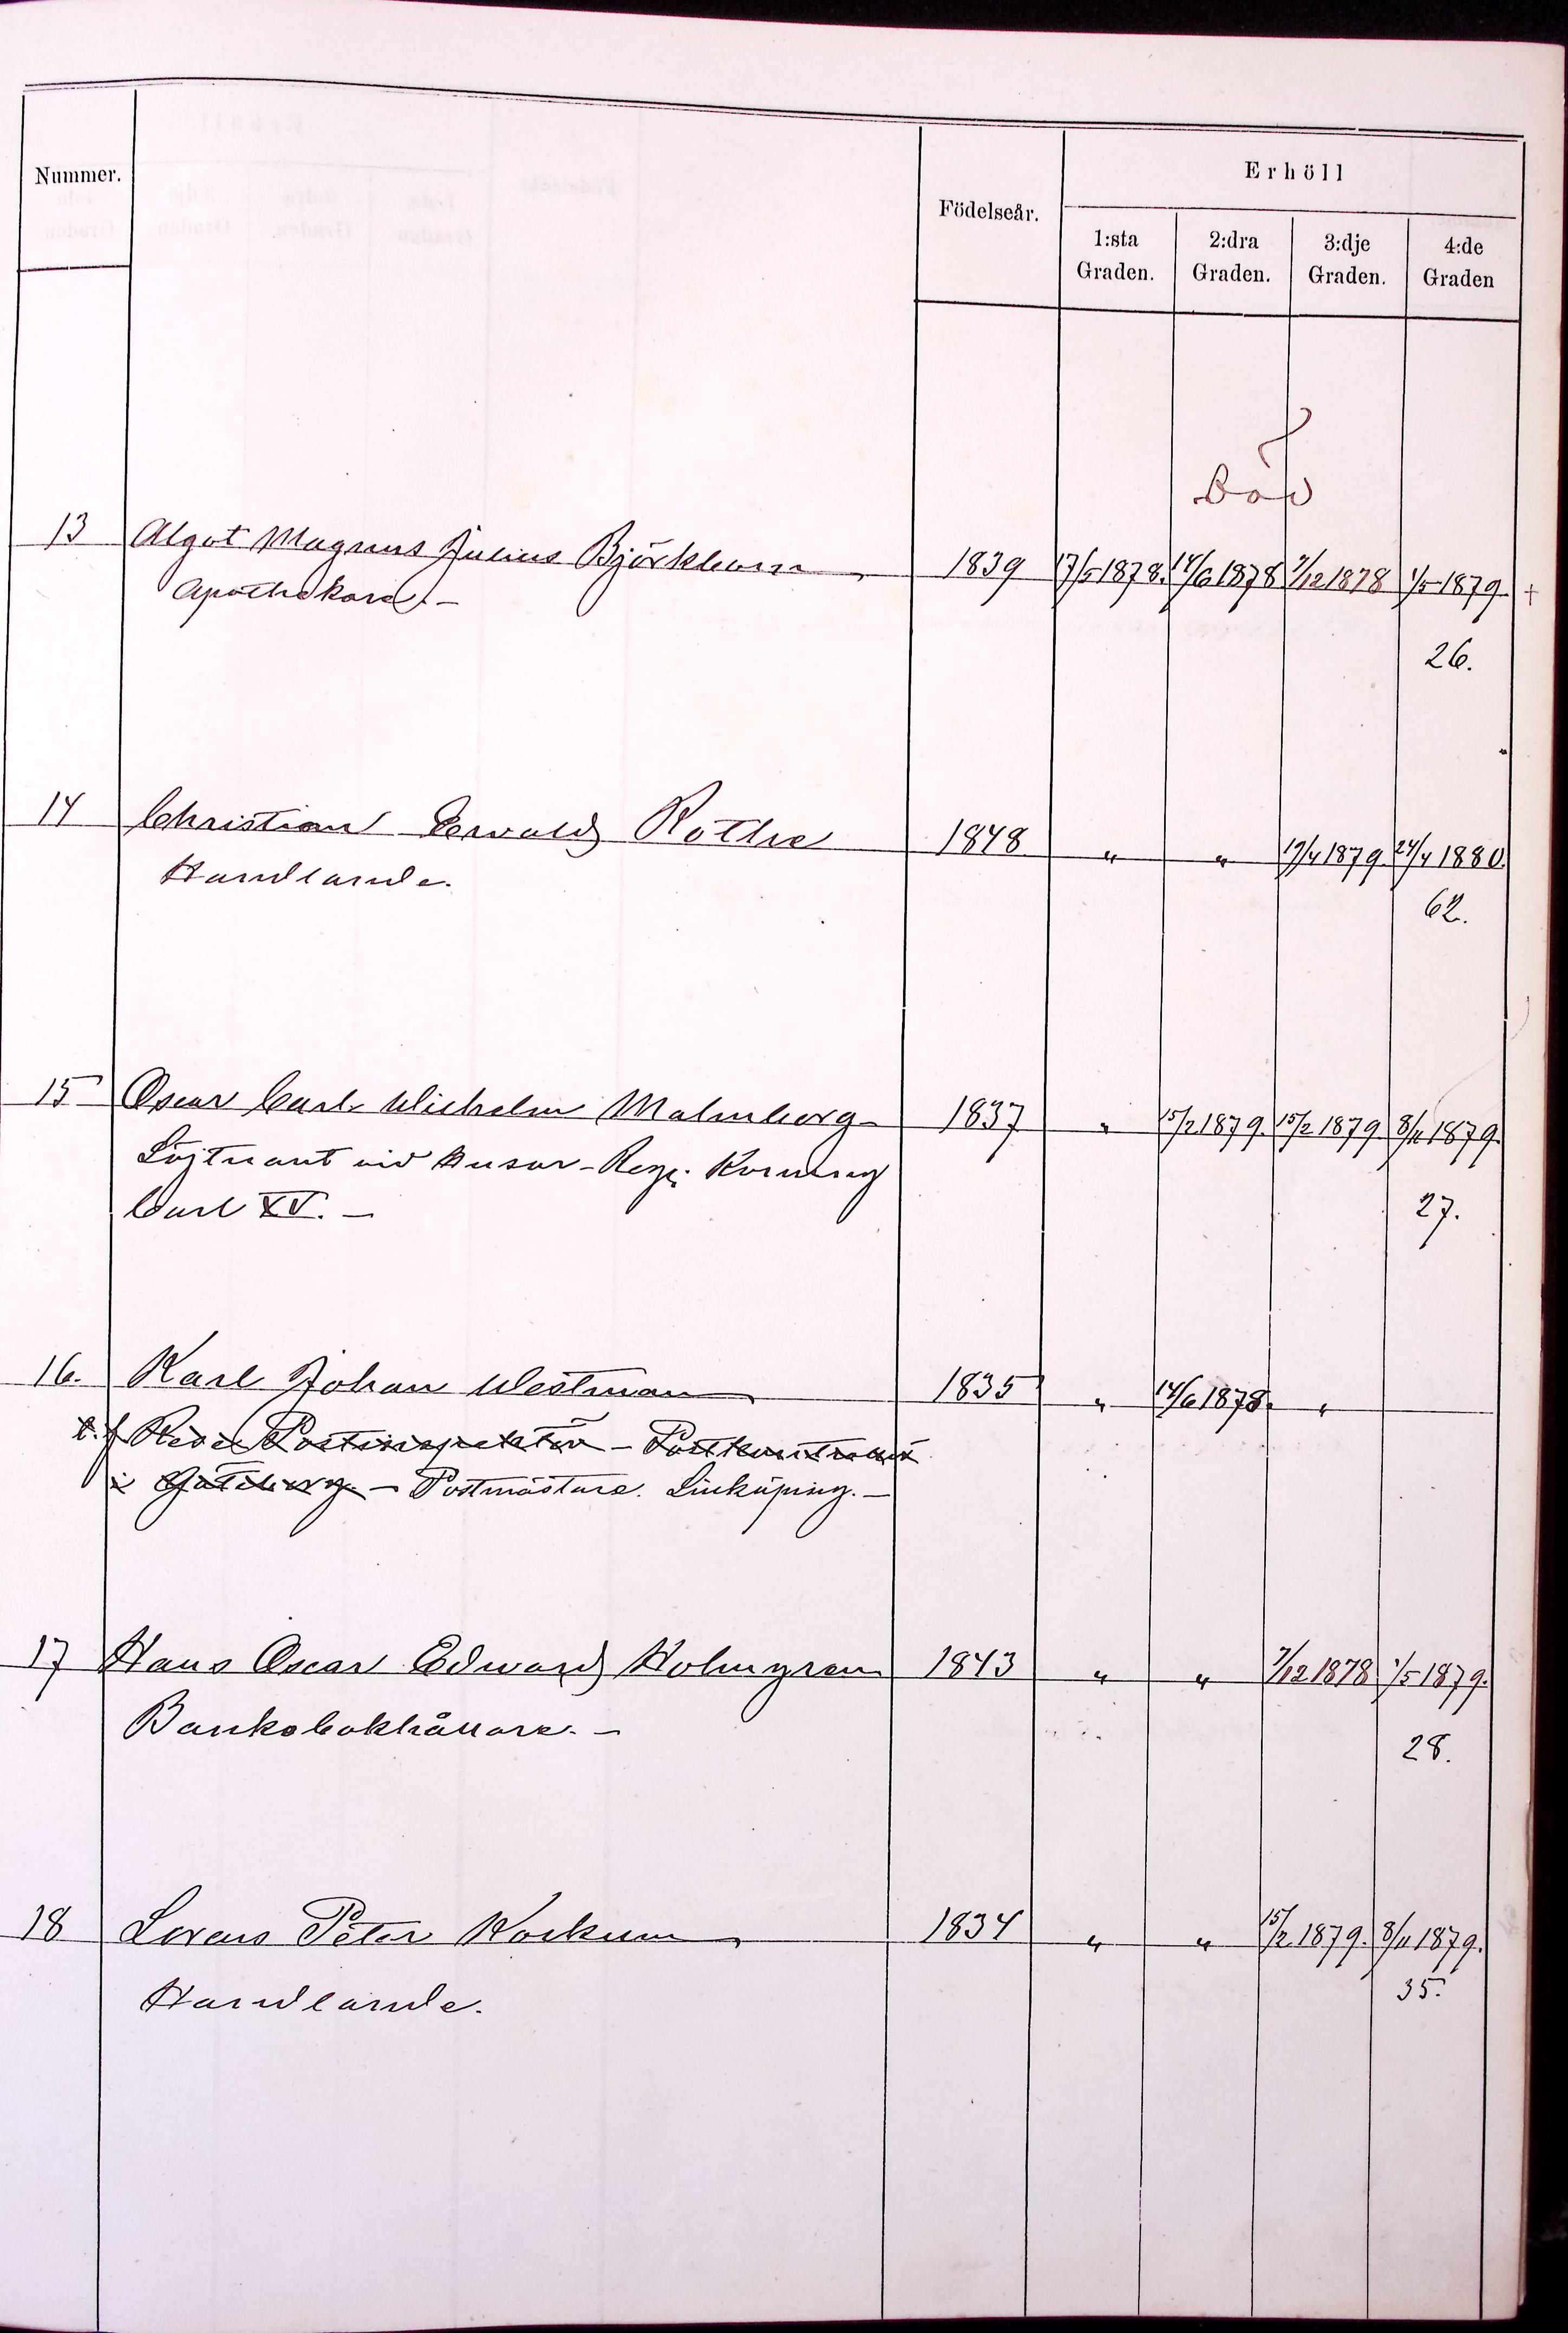 Nummer.
Födelseår.
Erhöll
1:sta Graden.
2:dra Graden.
3:dje Graden.
4:de Graden
Död
13 Algot Magnus Julius Björkbom 1839 17/5 1878. 14/6 1878 7/12 1878 1/5 1879. +
Apothekare. –
26.
14 Christian Ewald Rothe 1848 " " 19/4 1879. 24/4 1880.
Handlande.
62.
15 Oscar Carl Wilhelm Malmborg 1837 " 15/2 1879. 15/2 1879. 8/11 1879.
Löjtnant vid Husar-Reg; Konung
Carl XV. –
27.
16. Karl Johan Westman 1835 " 14/6 1878. "
t.f Rese Postinspektör – Postkontrollör
i Göteborg. – Postmästare. Linköping. –
17 Hans Oscar Edward Holmgren 1843 " " 7/12 1878 1/5 1879.
Banksbokhållare. –
28.
18 Lorens Peter Kockum 1834 " " 15/2 1879. 8/11 1879.
Handlande.
35.